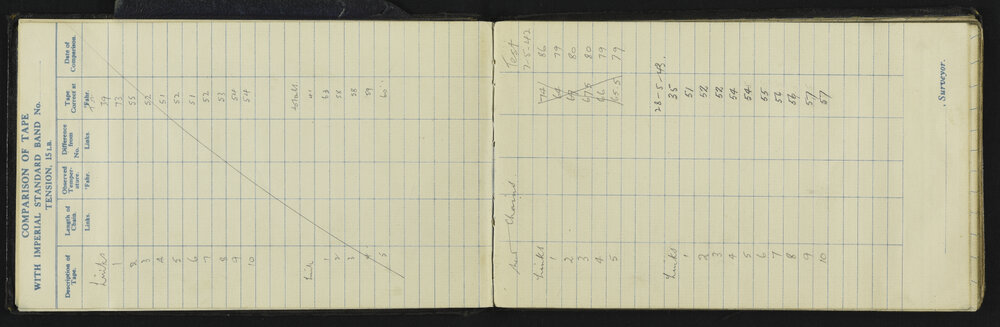 COMPARISON OF TAPE
WITH IMPERIAL STANDARD BAND No.
TENSION, 15 LB.
Description of Tape. Length of Chain. Observed Temperature. Difference from No. Tape Correct at Date of Comparison.
Links. °Fahr. Links. °Fahr.
Links 39
1 73
2 55
3 52
4 51
5 52
6 51
7 52
8 53
9 54
10 54
totals
Link 41
1 63
2 58
3 58
4 59
5 60
Chains Test
7-5-42
Links 74 86
1 64 79
2 68 80
3 67.5 80
4 66 79
5 65.5 79
28-5-43
Links 35
1 51
2 52
3 52
4 54
5 54
6 55
7 56
8 56
9 57
10 57
Surveyor.